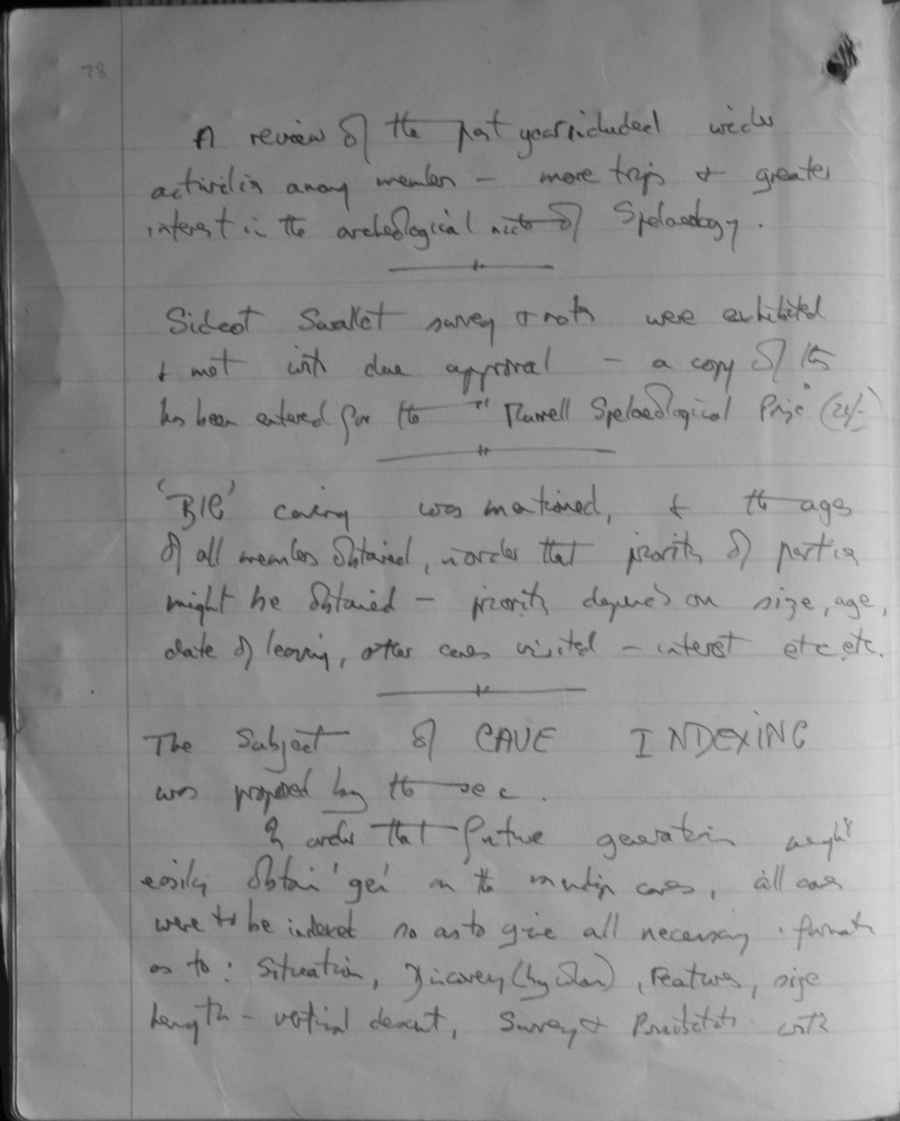 78
A review of the past year included wider
activities among members – more trips & greater
interest in the archeological side of Spelaeology.
Sidcot Swallet survey & notes were exhibited
& met with due approval – a copy of this
has been entered for the "          Spelaeological Prize" (
'BIG' caving was mentioned, & the ages
of all members obtained, in order that priority of parties
might be obtained – priority depends on size, age,
date of leaving, other caves visited – interest etc. etc.
The Subject of CAVE INDEXING
was proposed by the sec.
In order that future generations might
easily obtain 'gen' on the Mendip caves, all caves
were to be indexed so as to give all necessary informat
as to: Situation, Discovery (by whom), Features, size
Length – vertical descent, Survey &           with